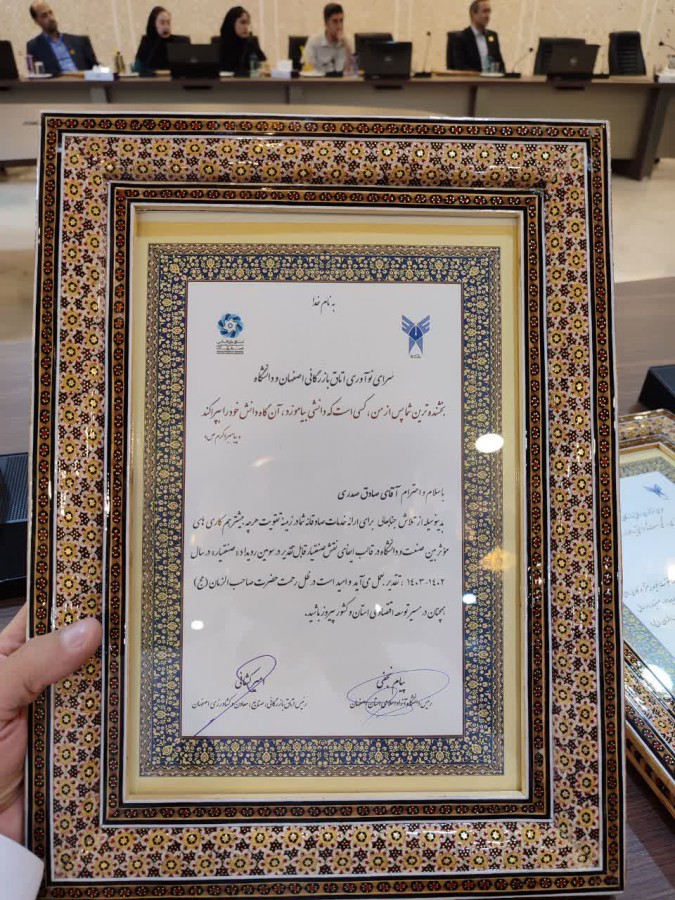 به نام خدا
سرای نوآوری اتاق بازرگانی اصفهان و دانشگاه
بخشنده ترین شما پس از من، کسی است که دانشی بیاموزد، آن گاه دانش خود را بپراکند
«پیامبر اکرم ص»
با سلام و احترام آقای صادق صدری
بدینوسیله از تلاش جنابعالی برای ارائه خدمات صادقانه شما در زمینه تقویت هرچه بیشتر هم کاری های
مؤثر بین صنعت و دانشگاه در قالب ایفای نقش صنعتیار قابل تقدیر در سومین رویداد «صنعتیار» در سال
۱۴۰۲-۱۴۰۳، تقدیر بعمل می آید و امید است در ظل رحمت حضرت صاحب الزمان (عج)
همچنان در مسیر توسعه اقتصادی استان و کشور پیروز باشید.
پیام نجفی
رئیس دانشگاه آزاد اسلامی استان اصفهان
امیر کشانی
رئیس اتاق بازرگانی، صنایع، معادن و کشاورزی اصفهان